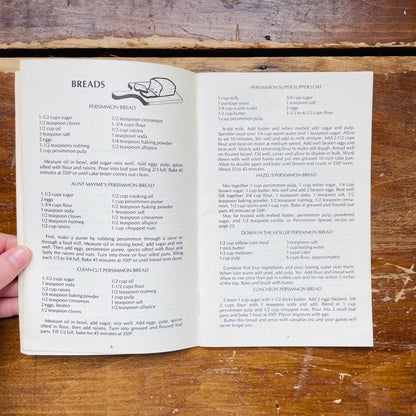 BREADS
PERSIMMON BREAD
1-1/2 cups sugar
1/2 teaspoon cloves
1/2 cup oil
1 teaspoon salt
2 eggs
1 cup persimmon pulp
1/2 teaspoon cinnamon
1-3/4 cups flour
1/2 cup raisins
1 teaspoon soda
1/4 teaspoon baking powder
1/2 teaspoon nutmeg
Measure oil in bowl, add sugar—mix well. Add eggs, pulp, spices
sifted with flour and raisins. Pour into loaf pan filling 2/3 full. Bake
45 minutes at 350º or until cake tester comes out dry.
AUNT MAYME'S PERSIMMON BREAD
1-1/2 cups sugar
2 eggs
2 cups flour
1 teaspoon soda
1 teaspoon salt
1/2 teaspoon cloves
1/2 teaspoon nutmeg
1/2 cup raisins
1/2 cup cooking oil
1 cup persimmon puree
1/2 teaspoon nutmeg
1/2 teaspoon cinnamon
1/2 teaspoon allspice
1 cup chopped nuts
First, make a puree by rubbing persimmon through a sieve or
through a food mill. Measure oil in mixing bowl, add sugar and mix
well. Then add eggs, persimmon puree, spices sifted with flour and
lastly the raisins and nuts. Turn into three or four oiled pans, filling
each 1/2 to 3/4 full. Bake 45 minutes at 350º or until bread tests done.
CLEAN CUT PERSIMMON BREAD
1-1/2 cups sugar
1 teaspoon soda
1/2 cup raisins
1/4 teaspoon baking powder
1/2 teaspoon cinnamon
2 eggs, beaten
1/2 teaspoon cloves
1/2 cup oil
1-3/4 cups flour
1/2 teaspoon nutmeg
1 cup pulp
1 teaspoon salt
1/2 teaspoon allspice
Measure oil in bowl, add sugar, mix well. Add eggs, pulp, spices
sifted in flour, then add raisins. Turn into greased and floured loaf
pans. Fill 1/2 full, bake for 45 minutes at 350º.
6
PERSIMMON SUPER SUPPER LOAF
1 cup milk
1 package yeast
1/4 cup warm water
1/2 cup butter
1 cup persimmon pulp
3/4 cup sugar
1 teaspoon salt
2 eggs
5-1/2 to 4-1/2 cups flour
Scald milk. Add butter and when melted add sugar and pulp.
Sprinkle yeast over 1/4 cup warm water and 1 teaspoon sugar. Allow
to set 10 minutes. Stir well and add to milk mixture. Add 2 1/2 cups
flour and beat on mixer at medium speed. Add well beaten eggs and
beat well. Slowly add remaining flour to make stiff dough. Knead well
on floured board. Oil well, cover and allow to double in bulk. Work
down with well oiled hands and put into greased 10 inch tube pan.
Allow to double again and bake until brown and crusty in 350º oven.
About 35 to 45 minutes.
HAZEL'S PERSIMMON BREAD
Mix together 1 cup persimmon pulp, 1 cup white sugar, 1/4 cup
brown sugar, 1 cup butter. Mix well and add 2 eggs and beat. Beat well.
Sift together 2 cups flour, 1/2 teaspoon salt, 1/2 teaspoon soda, 1/2
teaspoon baking powder, 1/2 teaspoon nutmeg, 1/2 teaspoon cinna-
mon, 1/2 cup raisins and 1 cup nuts. Bake in greased and floured pan
45 minutes at 350º.
May be frosted with melted butter, persimmon pulp, powdered
sugar, and 1/2 teaspoon vanilla, or Persimmon Spread, recipe on
page 23.
DOWN IN THE HOLLER PERSIMMON BREAD
1/2 cup yellow corn meal
1 stick butter
1/2 cup molasses
1 cup pulp
1 teaspoon salt
1 cup boiling water
1 yeast cake
6 cups flour, approximately
Combine first four ingredients and pour boiling water over them.
When luke warm add yeast, add pulp. Stir. Add flour and knead well.
Allow to rise once then put in coffee cans and let rise within 2 inches
of the top. Bake and brush with butter.
LUNCHEON PERSIMMON BREAD
Cream 1 cup sugar with 1 1/2 sticks butter. Add 2 eggs (beaten). Sift
2 cups flour with 1 teaspoon soda and add. Blend in 1 cup
persimmon pulp and 1/2 cup chopped nuts. Pour into 2 small loaf
pans and bake 1 hour at 350º. Flavor improves with age.
Butter this bread and serve with sassafras tea and your guests will
never forget you.
7